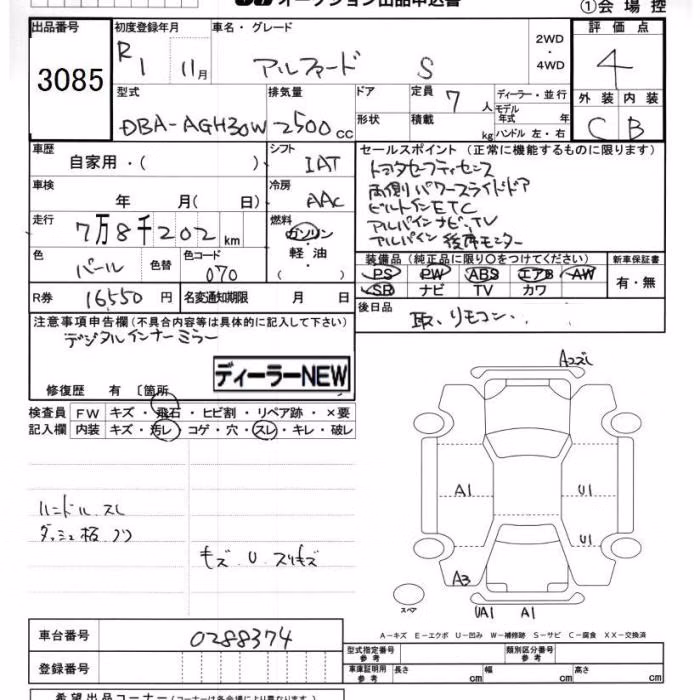 オークション出品申込書
①会場控
出品番号 3085
初度登録年月 R1 11月
車名・グレード アルファード S
2WD・4WD
評価点 4
外装 C 内装 B
型式 DBA-AGH30W
排気量 2500cc
ドア 形状
定員 7人
積載 kg
ディーラー・並行
モデル年式 年
ハンドル 左・右
車歴 自家用・( )
シフト IAT
車検 年 月( 日)
冷房 AAC
走行 7万8千202km
燃料 ガソリン 軽油 ( )
色 パール 色替
色コード 070
R券 16550円
名変通知期限 月 日
セールスポイント(正常に機能するものに限ります)
トヨタセーフティセンス
両側パワースライドドア
ビルトインETC
アルパインナビ、TV
アルパイン後席モニター
装備品(純正品に限り○をつけてください)
新車保証書 有・無
PS PW ABS エアB AW
SR ナビ TV カワ
後日品 取、リモコン、
注意事項申告欄(不具合内容等は具体的に記入して下さい)
デジタルインナーミラー
ディーラーNEW
修復歴 有〔箇所
検査員記入欄
FW キズ・飛石・ヒビ割・リペア跡・×要
内装 キズ・汚レ・コゲ・穴・スレ・キレ・破レ
ハンドル スレ
ダッシュ板
キズ U スリキズ
Aコスレ
A1 U1
U1
A3
UA1 A1
スペア
A-キズ E-エクボ U-凹み W-補修跡 S-サビ C-腐食 XX-交換済
車台番号 0288374
登録番号
型式指定番号 参考
類別区分番号 参考
車庫証明用 参考 長さ cm 幅 cm 高さ cm
希望出品コーナー(コーナーは各会場により